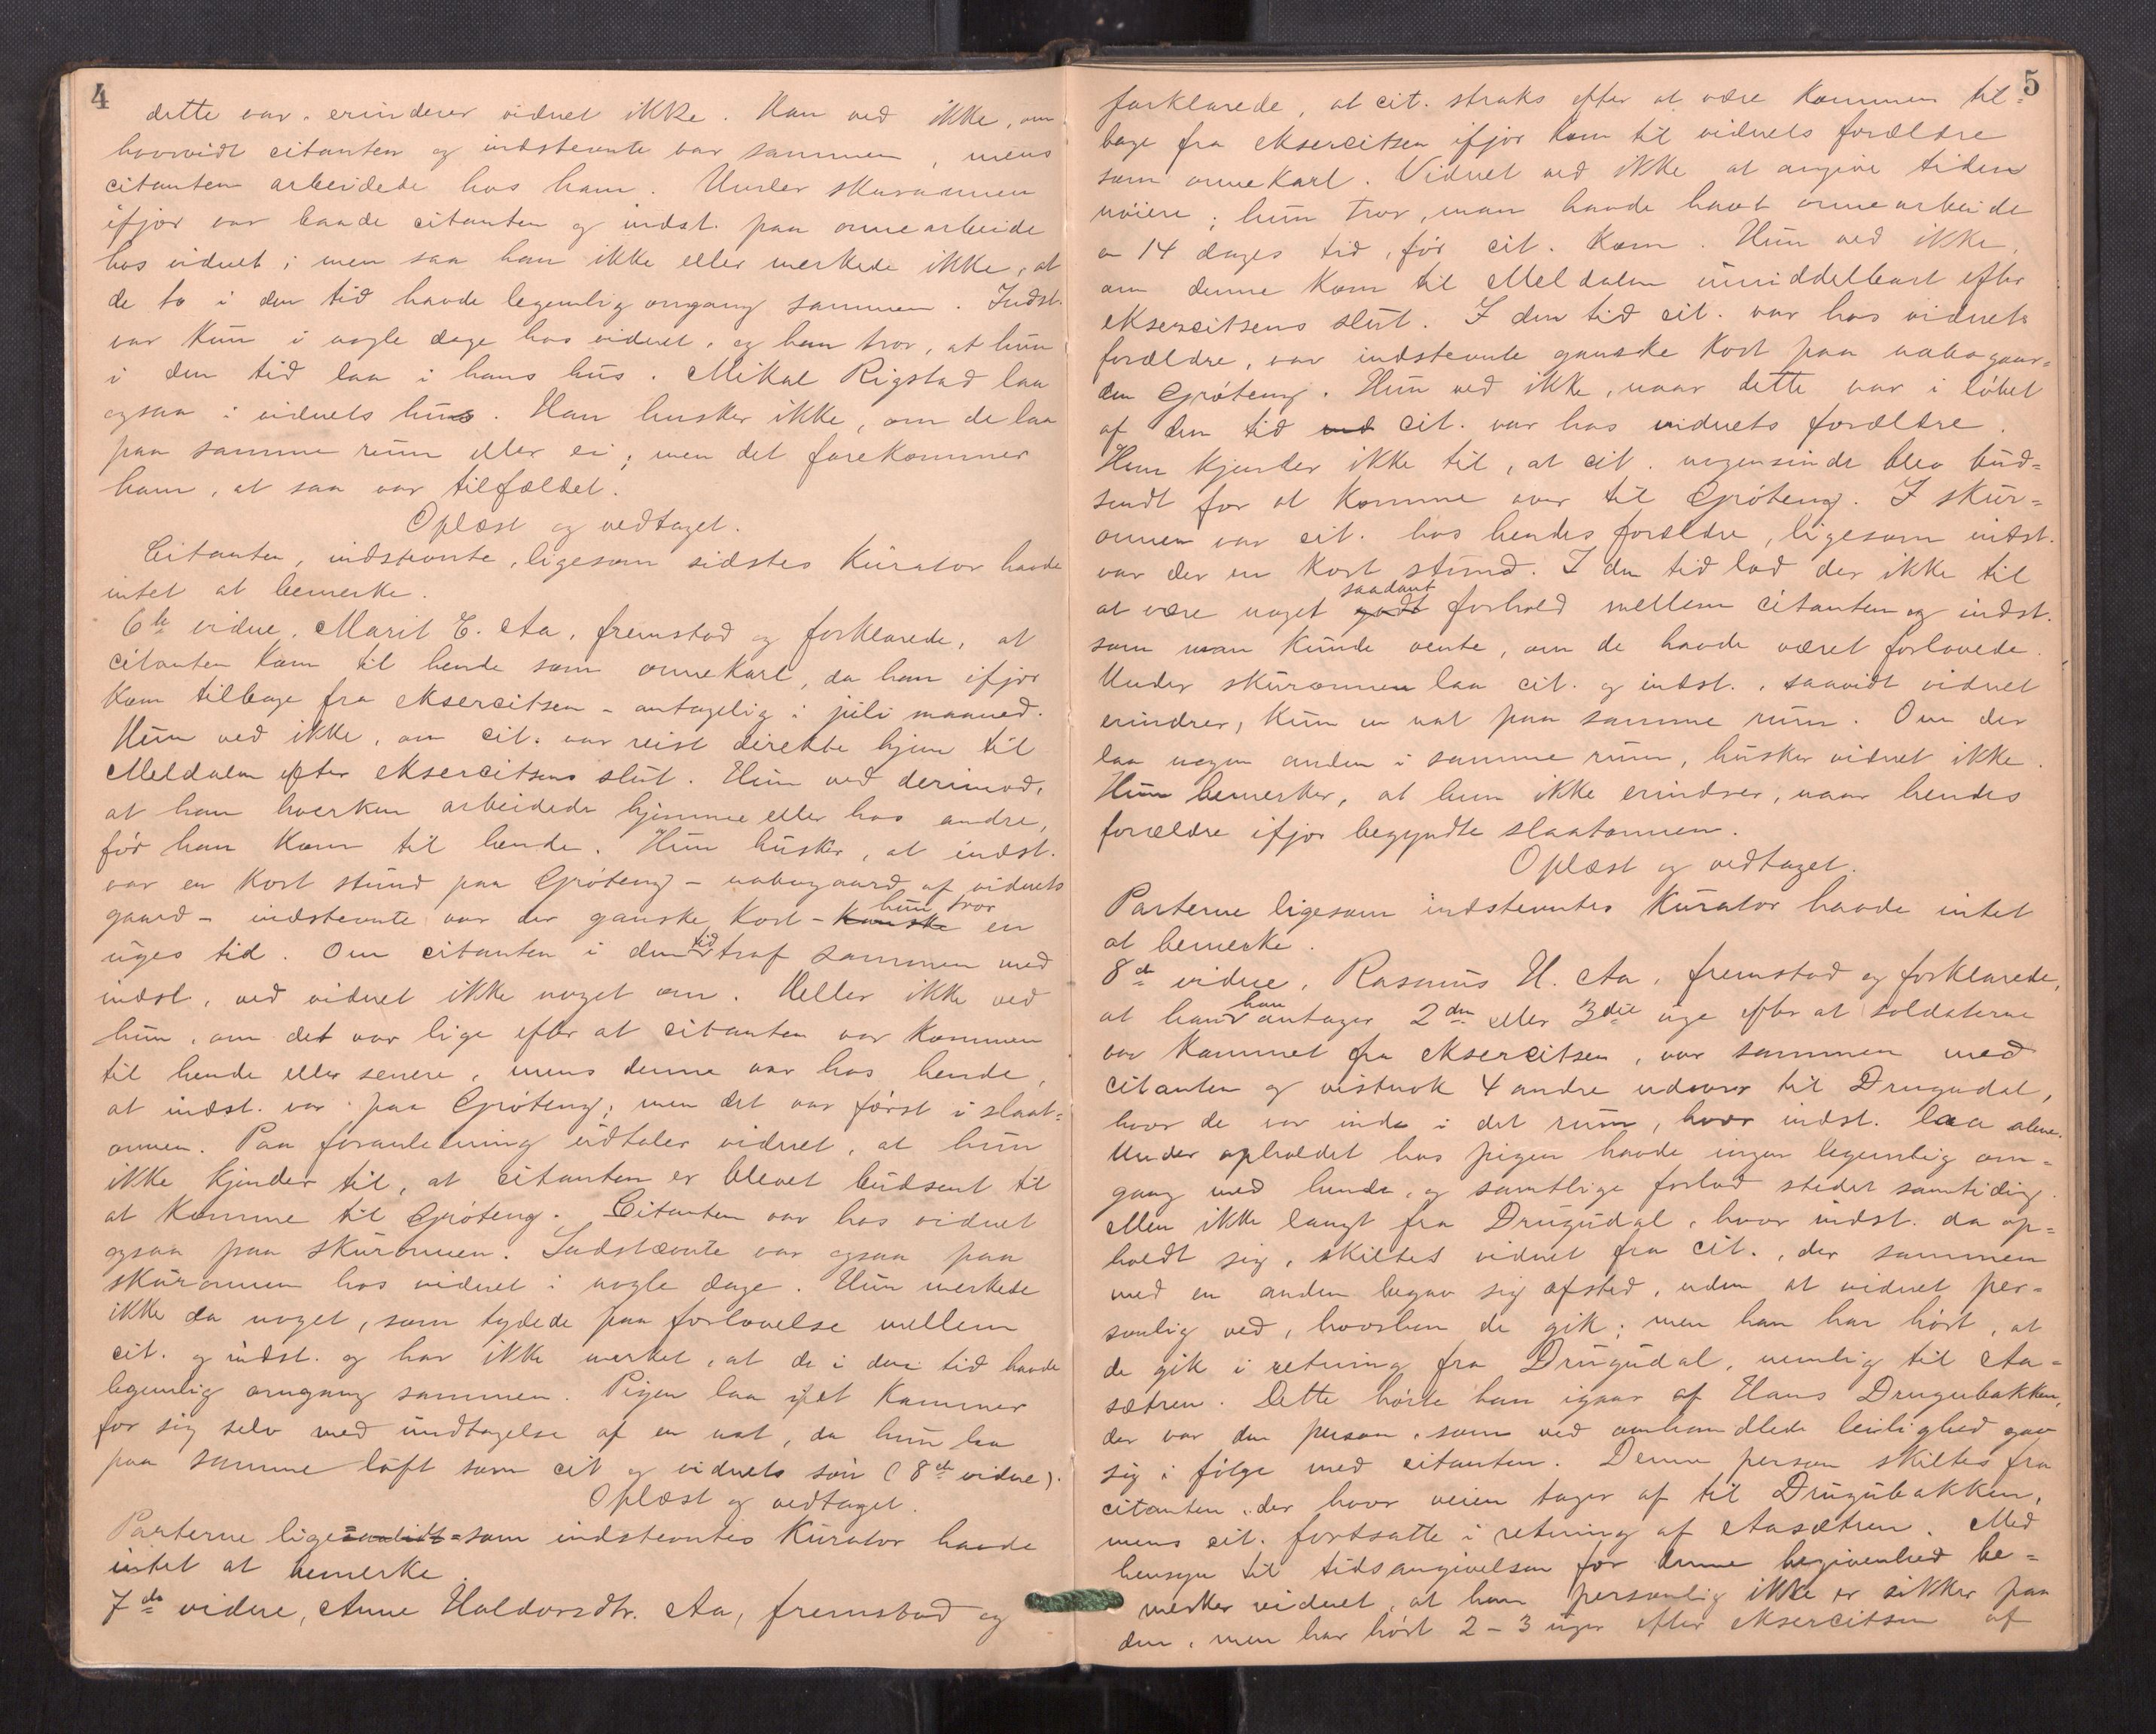 4
dette var erindrer vidnet ikke. Han ved ikke, om
hvorvidt citanten og indstevnte var sammen, mens
citanten arbeidede hos ham. Under skuraannen
ifjor var baade citanten og indst. paa onnearbeide
hos vidnet; men saa han ikke eller merkede ikke, at
de to i den tid havde legemlig omgang sammen. Indst.
var kun i nogle dage hos vidnet, og han tror, at hun
i den tid laa i hans hus. Mikal Rigstad laa
ogsaa i vidnets hus. Han husker ikke, om de laa
paa samme rum eller ei; men det forekommer
ham, at saa var tilfældet.
Oplæst og vedtaget.
Citanten, indstevnte, ligesom sidstes kurator havde
intet at bemerke.
6te vidne, Marit E. Aa, fremstod og forklarede, at
citanten kom til hende som onnekarl, da han ifjor
kom tilbage fra eksercitsen - antagelig i juli maaned.
Hun ved ikke, om cit. var reist direkte hjem til
Meldalen efter eksercitsens slut. Hun ved derimod,
at han hverken arbeidede hjemme eller hos andre,
før han kom til hende. Hun husker, at indst.
var en kort stund paa Grøteng - nabogaard af vidnets
gaard - indstevnte var der ganske kort - kanske hun tror en
uges tid. Om citanten i den tid traf sammen med
indst., ved vidnet ikke noget om. Heller ikke ved
hun, om det var lige efter at citanten var kommen
til hende eller senere, mens denne var hos hende,
at indst. var paa Grøteng; men det var først i slaat-
onnen. Paa foranledning udtaler vidnet, at hun
ikke kjender til, at citanten er blevet budsent til
at komme til Grøteng. Citanten var hos vidnet
ogsaa paa skuronnen. Indstævnte var ogsaa paa
skuronnen hos vidnet i nogle dage. Hun merkede
ikke da noget, som tydede paa forlovelse mellem
cit. og indst. og har ikke merket, at de i den tid havde
legemlig omgang sammen. Pigen laa i et kammer
for sig selv med undtagelse af en nat, da hun laa
paa samme loft som cit og vidnets søn (8de vidne).
Oplæst og vedtaget.
Parterne ligesom indstevntes kurator havde
intet at bemerke.
7de vidne, Anne Haldorsdtr. Aa, fremstod og
5
forklarede, at cit. straks efter at være kommen til-
bage fra eksercitsen ifjor kom til vidnets forældre
som onnekarl. Vidnet ved ikke at angive tiden
nøiere; hun tror, man havde havt onnearbeide
en 14 dages tid, før cit. kom. Hun ved ikke,
om denne kom til Meldalen umiddelbart efter
eksercitsens slut. I den tid cit. var hos vidnets
forældre, var indstevnte ganske kort paa nabogaar-
den Grøteng. Hun ved ikke, naar dette var i løbet
af den tid cit. var hos vidnets forældre.
Hun kjender ikke til, at cit. nogensinde blev bud-
sendt for at komme over til Grøteng. I skur-
onnen var cit. hos hendes forældre, ligesom indst.
var der en kort stund. I den tid lod der ikke til
at være noget godt saadant forhold mellem citanten og indst.
som man kunde vente, om de havde været forlovede.
Under skuronnen laa cit. og indst., saavidt vidnet
erindrer, kun en nat paa samme rum. Om der
laa nogen anden i samme rum, husker vidnet ikke.
Hun bemerker, at hun ikke erindrer, naar hendes
forældre ifjor begyndte slaatonnen.
Oplæst og vedtaget.
Parterne ligesom indstevntes kurator havde intet
at bemerke.
8de vidne, Rasmus H. Aa, fremstod og forklarede,
at han han antager 2den eller 3die uge efter at soldaterne
var kommet fra eksercitsen, var sammen med
citanten og vistnok 4 andre udover til Drugudal,
hvor de var inde i det rum, hvor indst. laa alene.
Under opholdet hos pigen havde ingen legemlig om-
gang med hende, og samtlige forlod stedet samtidig.
Men ikke langt fra Drugudal, hvor indst. da op-
holdt sig, skiltes vidnet fra cit., der sammen
med en anden begav sig afsted, uden at vidnet per-
sonlig ved, hvorhen de gik; men han har hørt, at
de gik i retning fra Drugudal, nemlig til Aa-
sætren. Dette hørte han igaar af Hans Drugubakken,
der var den person, som ved omhandlede leilighed gav
sig i følge med citanten. Denne person skiltes fra
citanten, der hvor veien tager af til Drugubakken,
mens cit. fortsatte i retning af Aasætren. Med
hensyn til tidsangivelsen for denne begivenhed be-
merker vidnet, at han personlig ikke er sikker paa
den, men har hørt 2 - 3 uger efter eksercitsen af